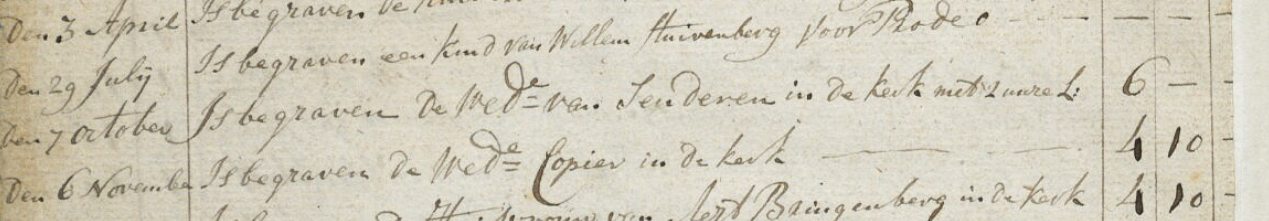 Den 3 April Is begraven de
Den 29 July Is begraven een kind van Willem Stuivenberg voor Rode o — — —
Den 7 October Is begraven De Wed^e van Senderen in de kerk met 2 uure L: 6 —
Den 6 November Is begraven De Wed^e Copier in de kerk — — 4 10 -
van Aert Bringenberg in de kerk 4 10 -